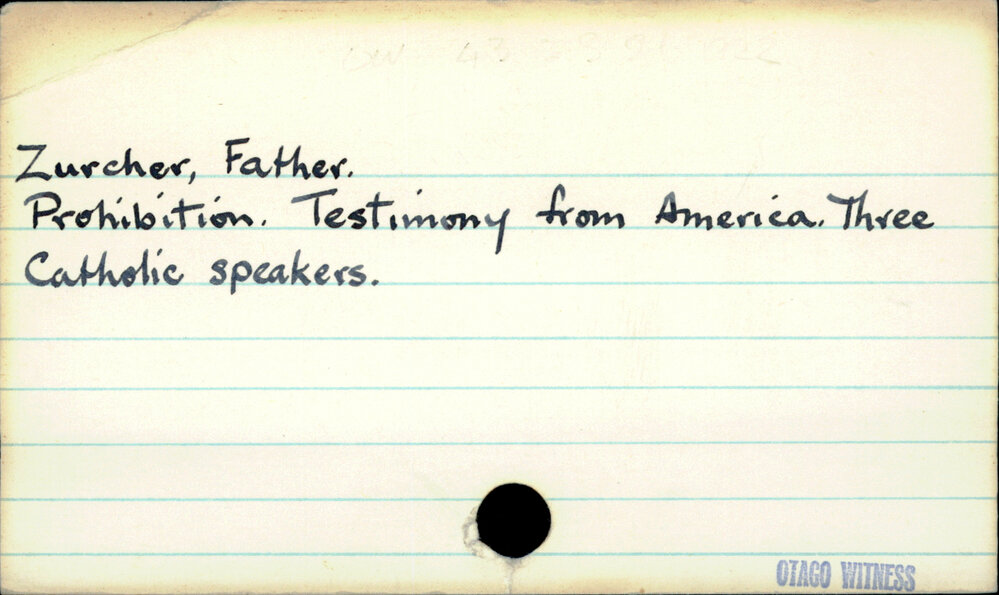 Zurcher, Father.
Prohibition. Testimony from America. Three
Catholic speakers.
OTAGO WITNESS